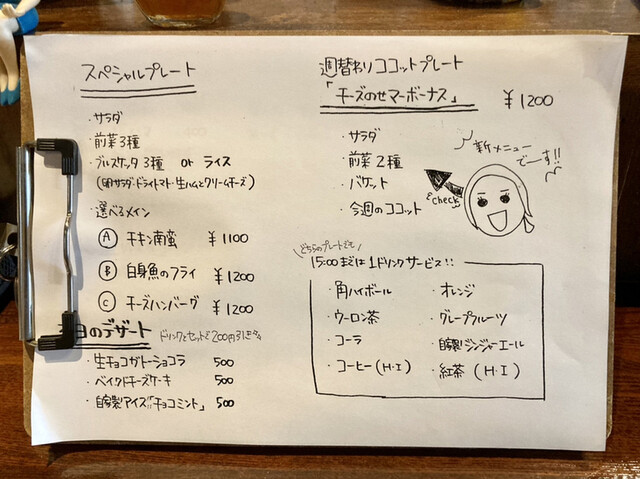 スペシャルプレート
・サラダ
・前菜3種
・ブルスケッタ3種 or ライス
(卵サラダ・ドライトマト・生ハムとクリームチーズ)
・選べるメイン
Ⓐ チキン南蛮 ¥1100
Ⓑ 白身魚のフライ ¥1200
Ⓒ チーズハンバーグ ¥1200
日のデザート ドリンクとセットで200円引きです
・生チョコガトーショコラ 500
・ベイクドチーズケーキ 500
・自家製アイス「チョコミント」 500
週替わりココットプレート
「チーズのせマーボーナス」 ¥1200
・サラダ
・前菜2種
・バケット
・今週のココット
check
新メニュー
でーす!!
どちらのプレートでも
15:00までは1ドリンクサービス!!
・角ハイボール ・オレンジ
・ウーロン茶 ・グレープフルーツ
・コーラ ・自家製ジンジャーエール
・コーヒー(H・I) ・紅茶(H・I)